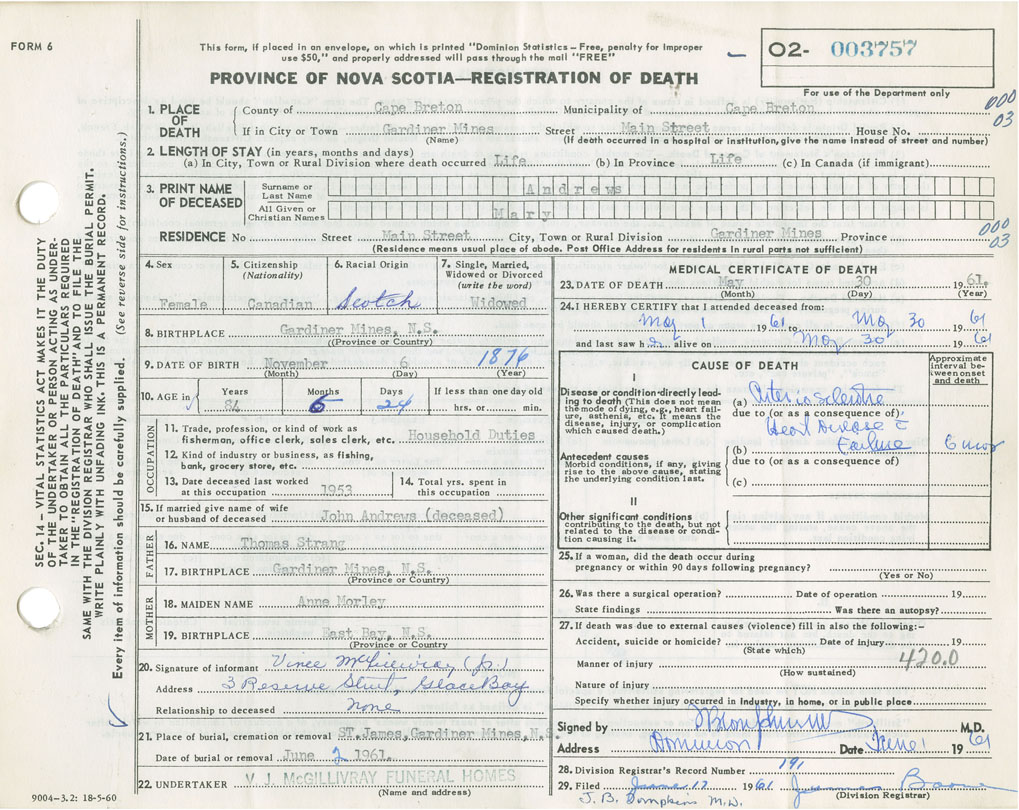 FORM 6
This form, if placed in an envelope, on which is printed "Dominion Statistics – Free, penalty for improper
use $50," and properly addressed will pass through the mail "FREE"
O2- 003757
For use of the Department only
PROVINCE OF NOVA SCOTIA—REGISTRATION OF DEATH
SEC. 14 – VITAL STATISTICS ACT MAKES IT THE DUTY
OF THE UNDERTAKER OR PERSON ACTING AS UNDER-
TAKER TO OBTAIN ALL THE PARTICULARS REQUIRED
IN THE "REGISTRATION OF DEATH" AND TO FILE THE
SAME WITH THE DIVISION REGISTRAR WHO SHALL ISSUE THE BURIAL PERMIT.
WRITE PLAINLY WITH UNFADING INK. THIS IS A PERMANENT RECORD.
Every item of information should be carefully supplied. (See reverse side for instructions.)
1. PLACE OF DEATH
County of Cape Breton Municipality of Cape Breton
000
03
If in City or Town Gardiner Mines Street Main Street House No.
(Name) (If death occurred in a hospital or institution, give the name instead of street and number)
2. LENGTH OF STAY (in years, months and days)
(a) In City, Town or Rural Division where death occurred Life (b) In Province Life (c) In Canada (if immigrant)
3. PRINT NAME OF DECEASED
Surname or Last Name Andrews
All Given or Christian Names Mary
RESIDENCE No Street Main Street City, Town or Rural Division Gardiner Mines Province
000
03
(Residence means usual place of abode. Post Office Address for residents in rural parts not sufficient)
4. Sex
Female
5. Citizenship
(Nationality)
Canadian
6. Racial Origin
Scotch
7. Single, Married,
Widowed or Divorced
(write the word)
Widowed
8. BIRTHPLACE Gardiner Mines, N.S.
(Province or Country)
9. DATE OF BIRTH November 6 1876
(Month) (Day) (Year)
10. AGE in
Years 84
Months 6
Days 24
If less than one day old
hrs. or min.
OCCUPATION
11. Trade, profession, or kind of work as
fisherman, office clerk, sales clerk, etc. Household Duties
12. Kind of industry or business, as fishing,
bank, grocery store, etc.
13. Date deceased last worked
at this occupation 1953
14. Total yrs. spent in
this occupation
15. If married give name of wife
or husband of deceased John Andrews (deceased)
FATHER
16. NAME Thomas Strang
17. BIRTHPLACE Gardiner Mines, N.S.
(Province or Country)
MOTHER
18. MAIDEN NAME Anne Morley
19. BIRTHPLACE East Bay, N.S.
(Province or Country
20. Signature of informant Vince McGillivray (Jr.)
Address 3 Reserve Street, Glace Bay
Relationship to deceased none
21. Place of burial, cremation or removal ST. James, Gardiner Mines, N.S.
Date of burial or removal June 2 1961.
22. UNDERTAKER V. J. McGILLIVRAY FUNERAL HOMES
(Name and address)
9004–3.2: 18-5-60
MEDICAL CERTIFICATE OF DEATH
23. DATE OF DEATH May 30 1961.
(Month) (Day) (Year)
24. I HEREBY CERTIFY that I attended deceased from:
May 1 1961 to May 30 1961
and last saw her alive on May 30 1961
CAUSE OF DEATH
Approximate
interval be-
tween onset
and death
I
Disease or condition directly lead-
ing to death (This does not mean
the mode of dying, e.g., heart fail-
ure, asthenia, etc. It means the
disease, injury, or complication
which caused death.)
(a) Arteriosclerotic
due to (or as a consequence of)
Heart Disease c
Failure 6 mos
(b)
Antecedent causes
Morbid conditions, if any, giving
rise to the above cause, stating
the underlying condition last.
due to (or as a consequence of)
(c)
II
Other significant conditions
contributing to the death, but not
related to the disease or condi-
tion causing it.
25. If a woman, did the death occur during
pregnancy or within 90 days following pregnancy?
(Yes or No)
26. Was there a surgical operation? Date of operation 19
State findings Was there an autopsy?
27. If death was due to external causes (violence) fill in also the following:–
Accident, suicide or homicide? Date of injury 19
(State which)
420.0
Manner of injury
(How sustained)
Nature of injury
Specify whether injury occurred in industry, in home, or in public place
Signed by M.D.
Address Dominion Date June 1 1961
28. Division Registrar's Record Number 191
29. Filed June 17 1961
(Division Registrar)
J. B. Tompkins M.D.